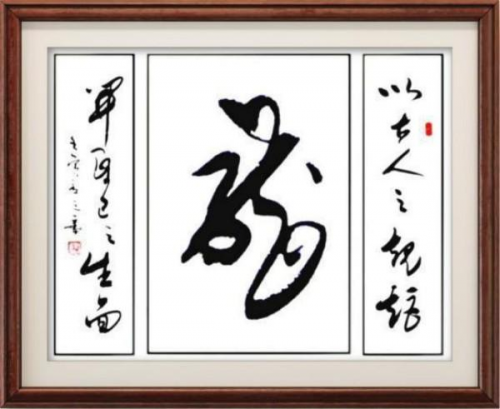 以古人之規矩
龍
開自己之生面